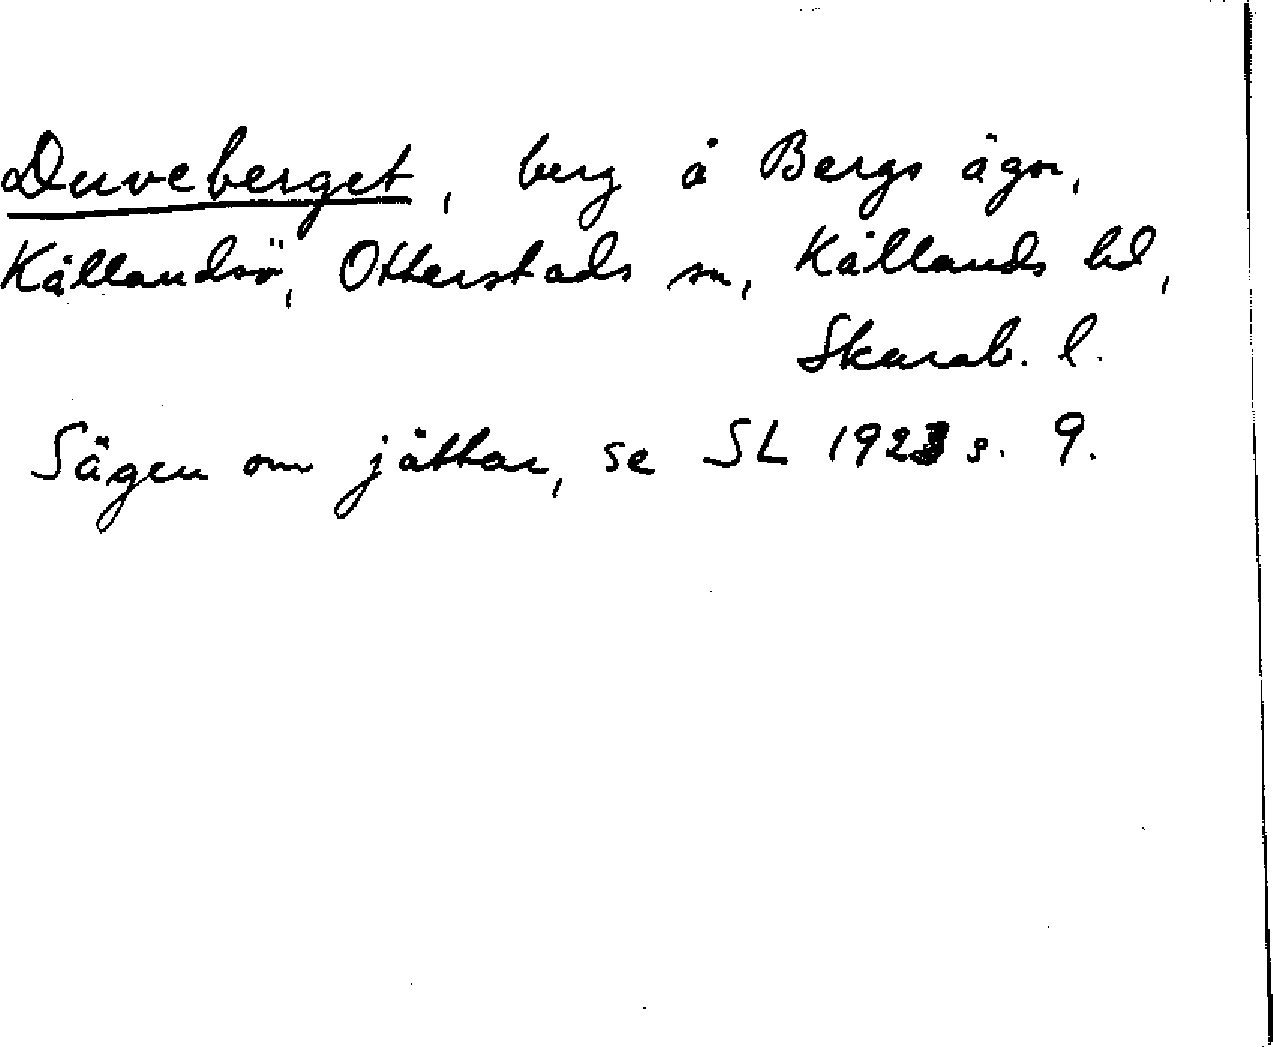 Duveberget, berg å Bergs ägor,
Kållandsö, Otterstads sn, Kållands hd,
Skarab. l.
Sägen om jättar, se SL 1923 s. 9.